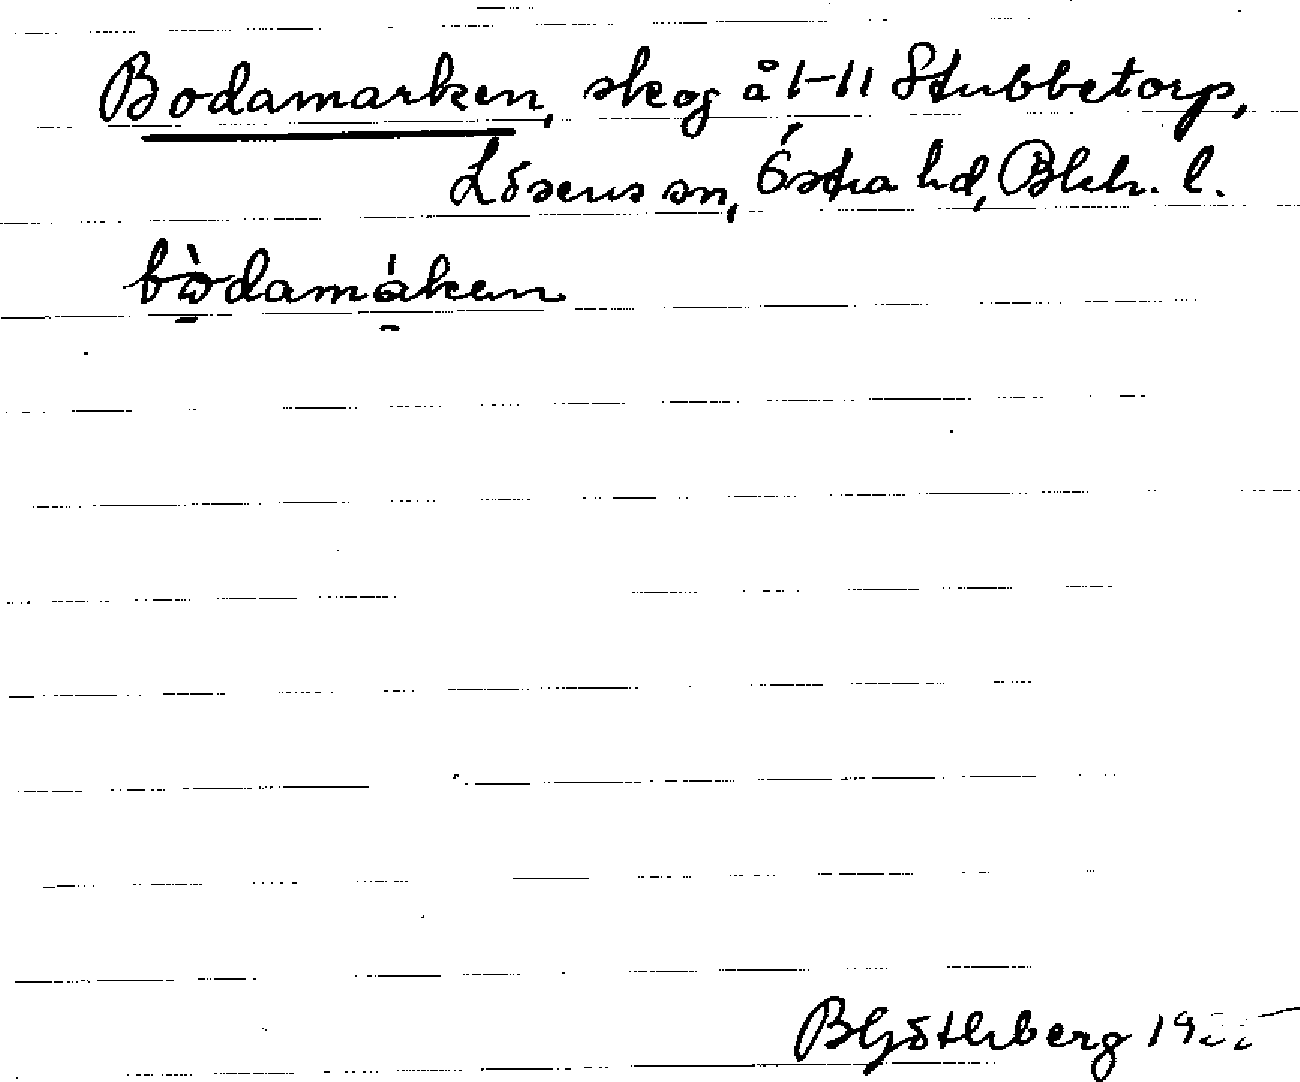 Bodamarken, skog å 1-11 Stubbetorp,
Lösens sn, Östra hd, Blek. l.
bòdamákan
BGöthberg